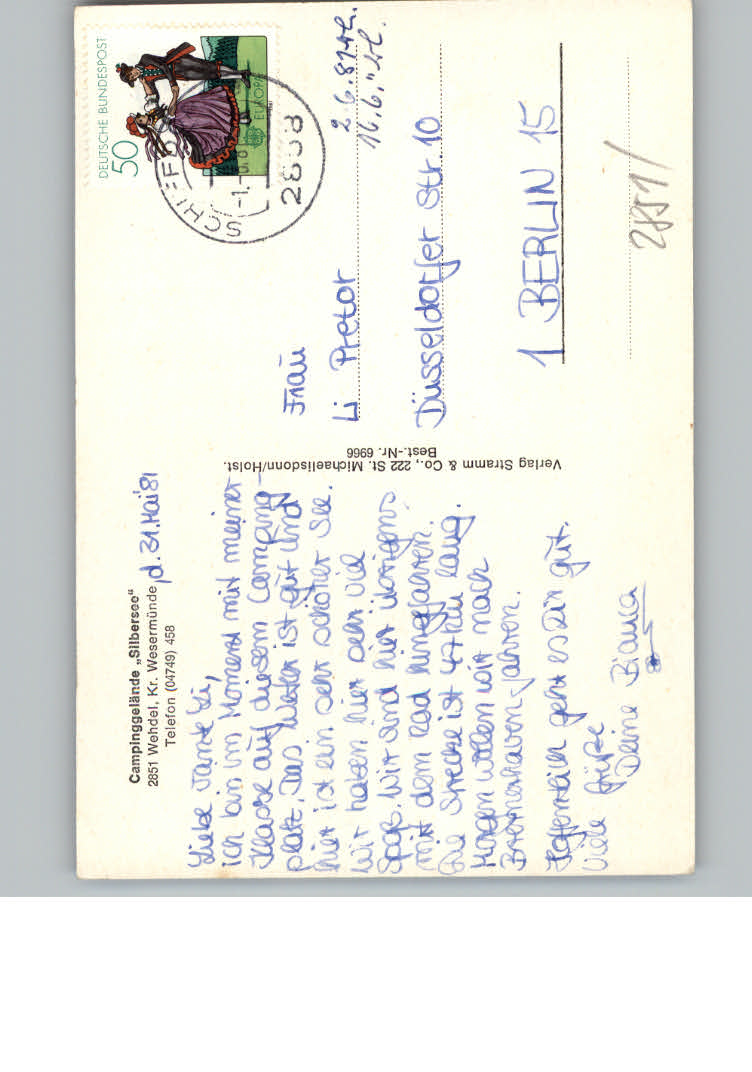 Campinggelände „Silbersee"
2851 Wehdel, Kr. Wesermünde, d. 31. Mai '81
Telefon (04749) 458
Liebe Tante Li,
ich bin im Moment mit meiner
Klasse auf diesem Camping-
platz. Das Wetter ist gut und
hier ist ein sehr schöner See.
Wir haben hier sehr viel
Spaß. Wir sind hier übrigens
mit dem Rad hingefahren.
Die Strecke ist 47 km lang.
Morgen wollen wir nach
Bremerhaven fahren.
Hoffentlich geht es Dir gut.
Viele Grüße
Deine Bianca
Verlag Stramm & Co., 222 St. Michaelisdonn/Holst.
Best.-Nr. 6966
DEUTSCHE BUNDESPOST
50
EUROPA
SCHIFFD
-1.
2858
2.6.81
16.6.
Frau
Li Pretor
Düsseldorfer Str. 10
1 BERLIN 15
2851/